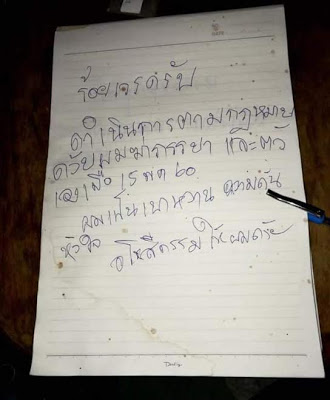 ร้อยเวรครับ
ดำเนินการตามกฎหมาย
ด้วยผมฆ่าภรรยา และตัว
เองเมื่อ 5 พค 60
ผมเป็นเบาหวาน ความดัน
หัวใจ
อโหสิกรรมให้ผมด้วย